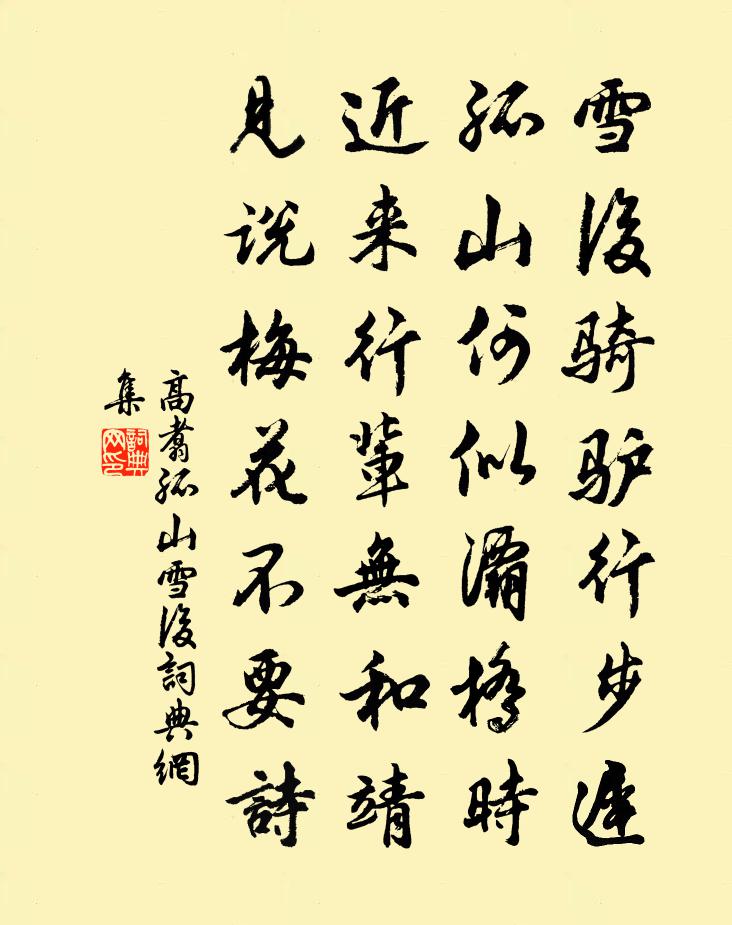 雪後骑驴行步遲
孤山何似灞橋時
近来行輩無和靖
見说梅花不要詩
高翥孤山雪後詞典網
集
詞典
网印